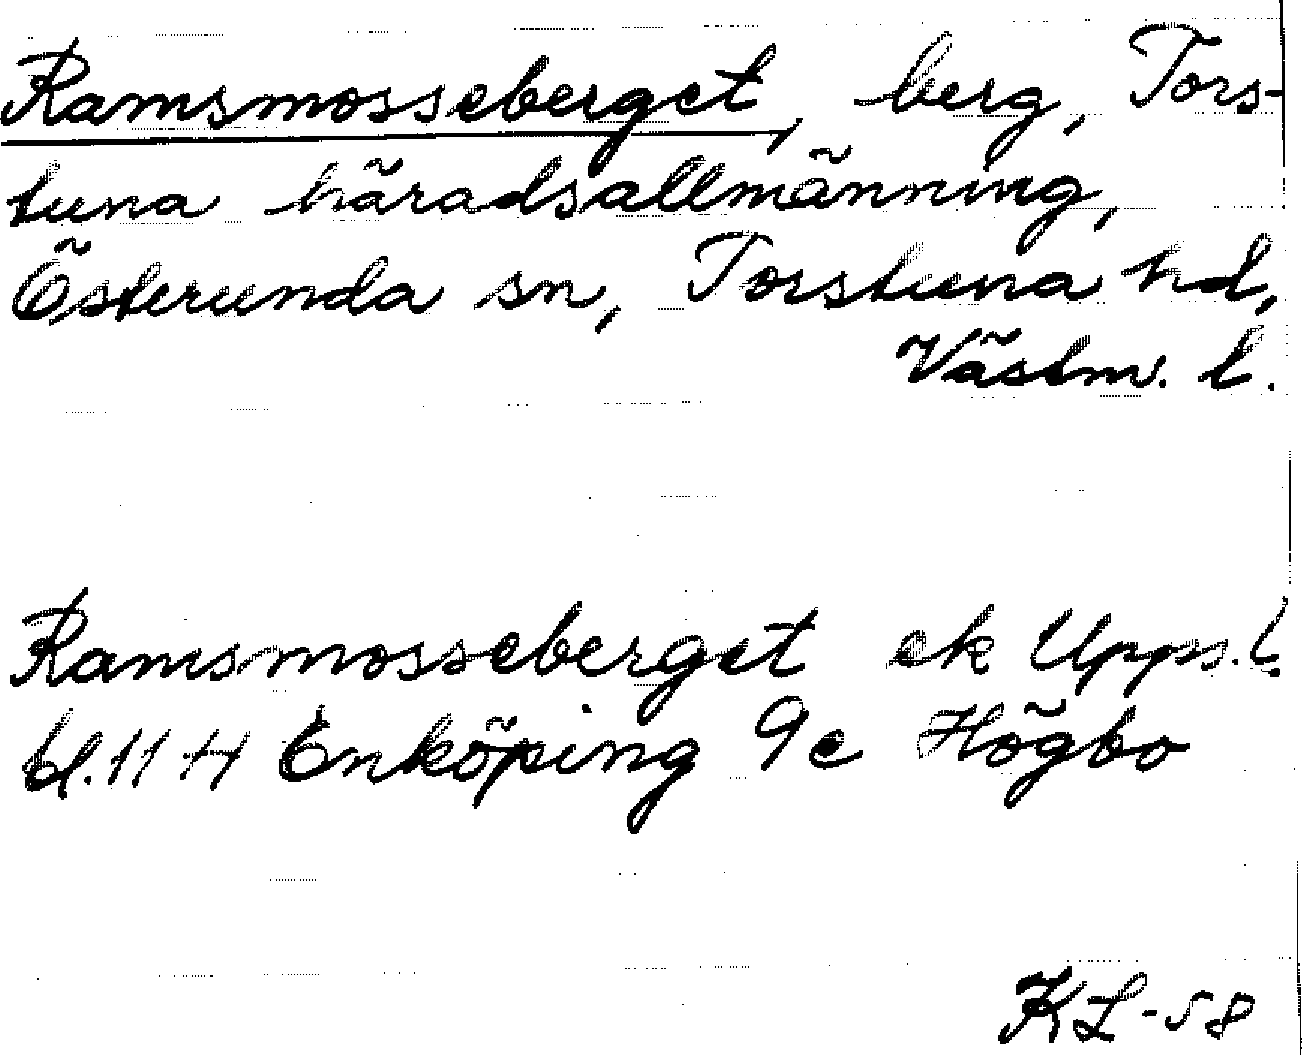 Ramsmosseberget, berg, Tors-
tuna häradsallmänning,
Österunda sn, Torstuna hd,
Västm. l.
Ramsmosseberget ek Upps. l.
bl. 11 H Enköping 9e Högbo
KL-58